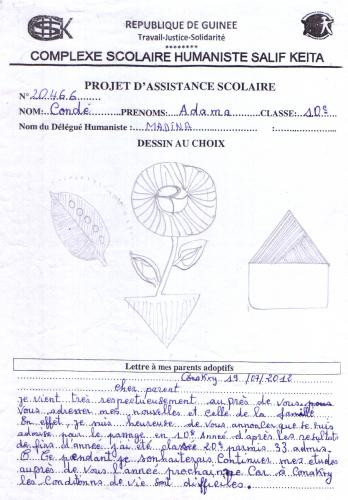 REPUBLIQUE DE GUINEE
Travail-Justice-Solidarité
********
COMPLEXE SCOLAIRE HUMANISTE SALIF KEITA
PROJET D'ASSISTANCE SCOLAIRE
N° 20.466
NOM: Condé PRENOMS: Adama CLASSE: 10e
Nom du Délégué Humaniste : MADINA
DESSIN AU CHOIX
Lettre à mes parents adoptifs
Conakry 19/07/2012
Cher parent
je vient très respectueusement auprès de vous pour
vous adresser mes nouvelles et celle de la famille
En effet, je suis heureuse de vous annoncer que je suis
admise pour le passage en 10e Année d'après les résultats
de fin d'année j'ai été classée 20e parmis 33 admis
Cependant je souhaiterais Continuer mes études
auprès de vous l'année prochaine Car à Conakry
les Conditions de vie sont difficiles.